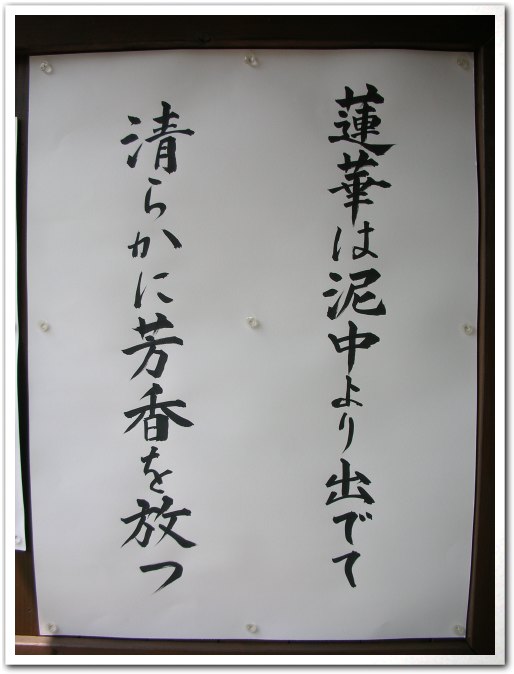 蓮華は泥中より出でて
清らかに芳香を放つ